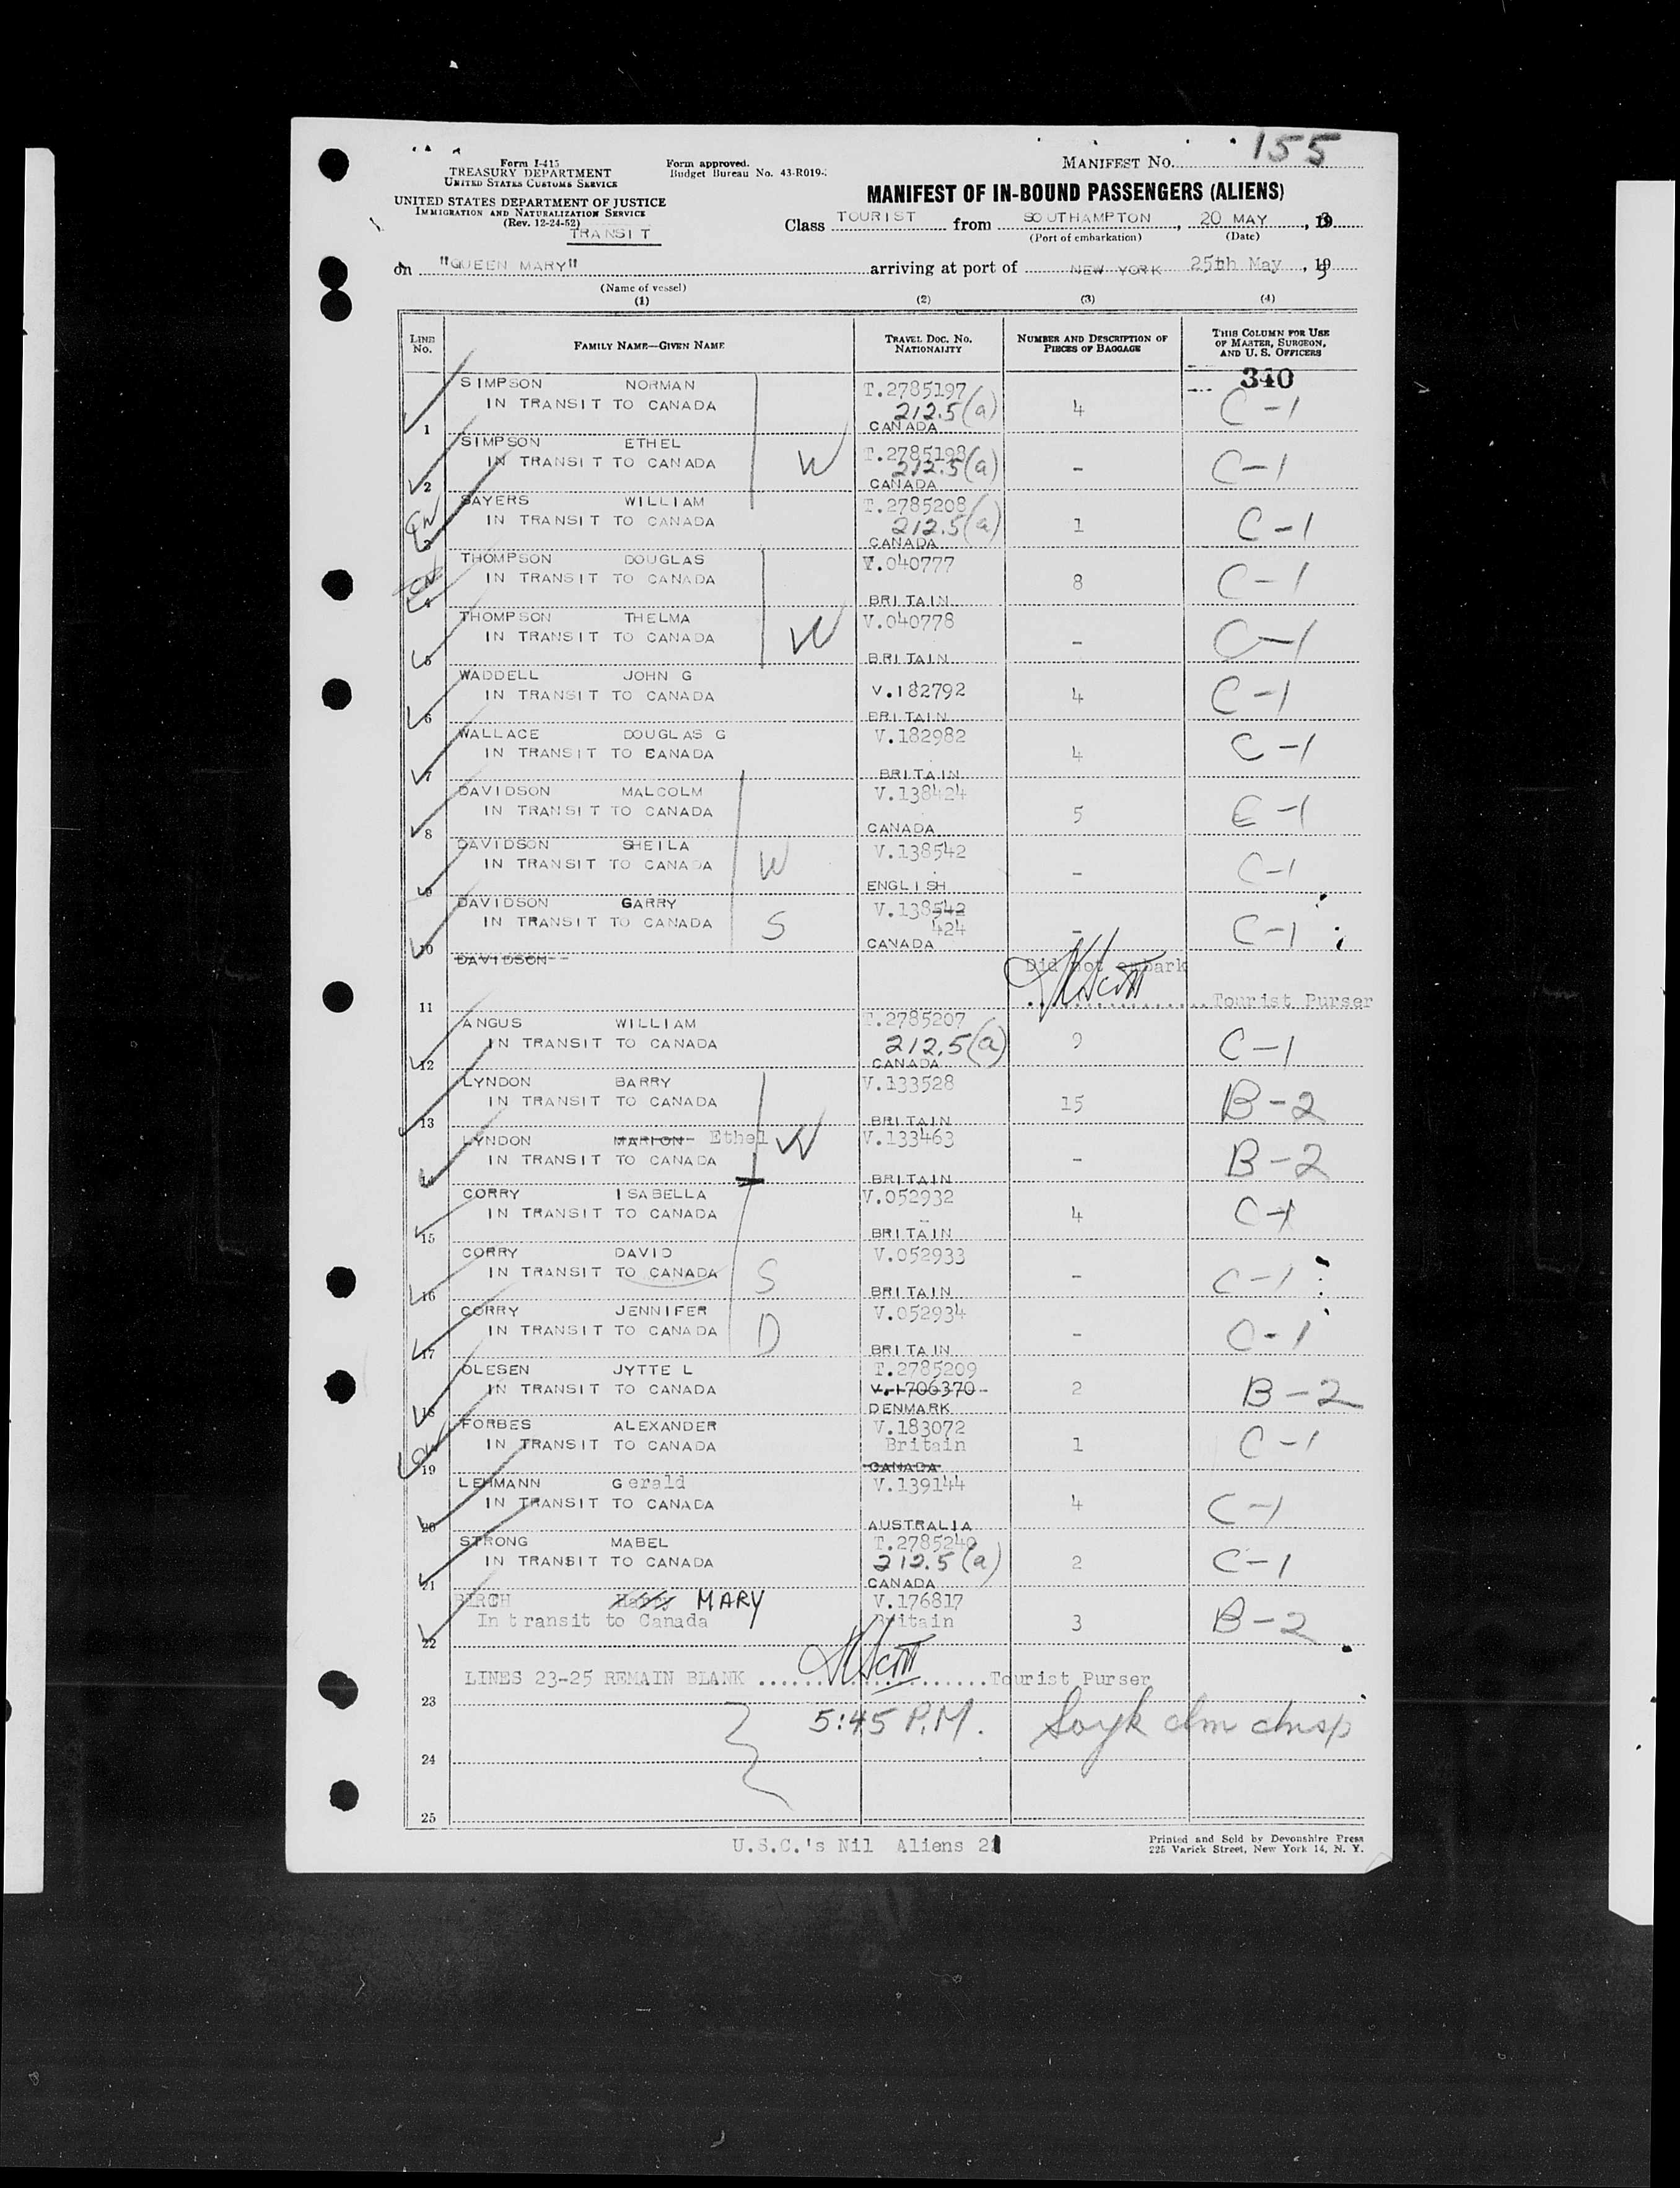 155
Form I-415
TREASURY DEPARTMENT
UNITED STATES CUSTOMS SERVICE
Form approved.
Budget Bureau No. 43-R019-
MANIFEST No.
UNITED STATES DEPARTMENT OF JUSTICE
IMMIGRATION AND NATURALIZATION SERVICE
(Rev. 12-24-52)
TRANSIT
MANIFEST OF IN-BOUND PASSENGERS (ALIENS)
Class TOURIST from SOUTHAMPTON, 20 MAY, 19
(Port of embarkation) (Date)
on "QUEEN MARY" arriving at port of NEW YORK 25th May, 19
(Name of vessel)
(1) (2) (3) (4)
LINE No. FAMILY NAME—GIVEN NAME TRAVEL DOC. NO. NATIONALITY NUMBER AND DESCRIPTION OF PIECES OF BAGGAGE THIS COLUMN FOR USE OF MASTER, SURGEON, AND U. S. OFFICERS
340
SIMPSON NORMAN T.2785197
IN TRANSIT TO CANADA 212.5(a) 4 C-1
1 CANADA
SIMPSON ETHEL T.2785198
IN TRANSIT TO CANADA W 212.5(a) - C-1
2 CANADA
SAYERS WILLIAM T.2785208
IN TRANSIT TO CANADA 212.5(a) 1 C-1
3 CANADA
THOMPSON DOUGLAS V.040777
IN TRANSIT TO CANADA 8 C-1
4 BRITAIN
THOMPSON THELMA V.040778
IN TRANSIT TO CANADA W - C-1
5 BRITAIN
WADDELL JOHN G
IN TRANSIT TO CANADA V.182792 4 C-1
6 BRITAIN
WALLACE DOUGLAS G V.182982
IN TRANSIT TO EANADA 4 C-1
7 BRITAIN
DAVIDSON MALCOLM V.138424
IN TRANSIT TO CANADA 5 C-1
8 CANADA
DAVIDSON SHEILA V.138542
IN TRANSIT TO CANADA W - C-1
9 ENGLISH
DAVIDSON GARRY V.138542
IN TRANSIT TO CANADA S 424 - C-1
10 CANADA
DAVIDSON Did not embark
11 Tourist Purser
ANGUS WILLIAM T.2785207
IN TRANSIT TO CANADA 212.5(a) 9 C-1
12 CANADA
LYNDON BARRY V.133528
IN TRANSIT TO CANADA 15 B-2
13 BRITAIN
LYNDON MARION Ethel W V.133463
IN TRANSIT TO CANADA - B-2
14 BRITAIN
CORRY ISABELLA V.052932
IN TRANSIT TO CANADA 4 C-1
15 BRITAIN
CORRY DAVID V.052933
IN TRANSIT TO CANADA S - C-1
16 BRITAIN
CORRY JENNIFER V.052934
IN TRANSIT TO CANADA D - C-1
17 BRITAIN
OLESEN JYTTE L T.2785209
IN TRANSIT TO CANADA V.1706370 2 B-2
18 DENMARK
FORBES ALEXANDER V.183072
IN TRANSIT TO CANADA Britain 1 C-1
19 CANADA
LEHMANN Gerald V.139144
IN TRANSIT TO CANADA 4 C-1
20 AUSTRALIA
STRONG MABEL T.2785240
IN TRANSIT TO CANADA 212.5(a) 2 C-1
21 CANADA
BIRCH MARY V.176817
In transit to Canada Britain 3 B-2
22
LINES 23-25 REMAIN BLANK ............ Tourist Purser
23
5:45 P.M.
24
25
U.S.C.'s Nil Aliens 21
Printed and Sold by Devonshire Press
225 Varick Street, New York 14, N. Y.